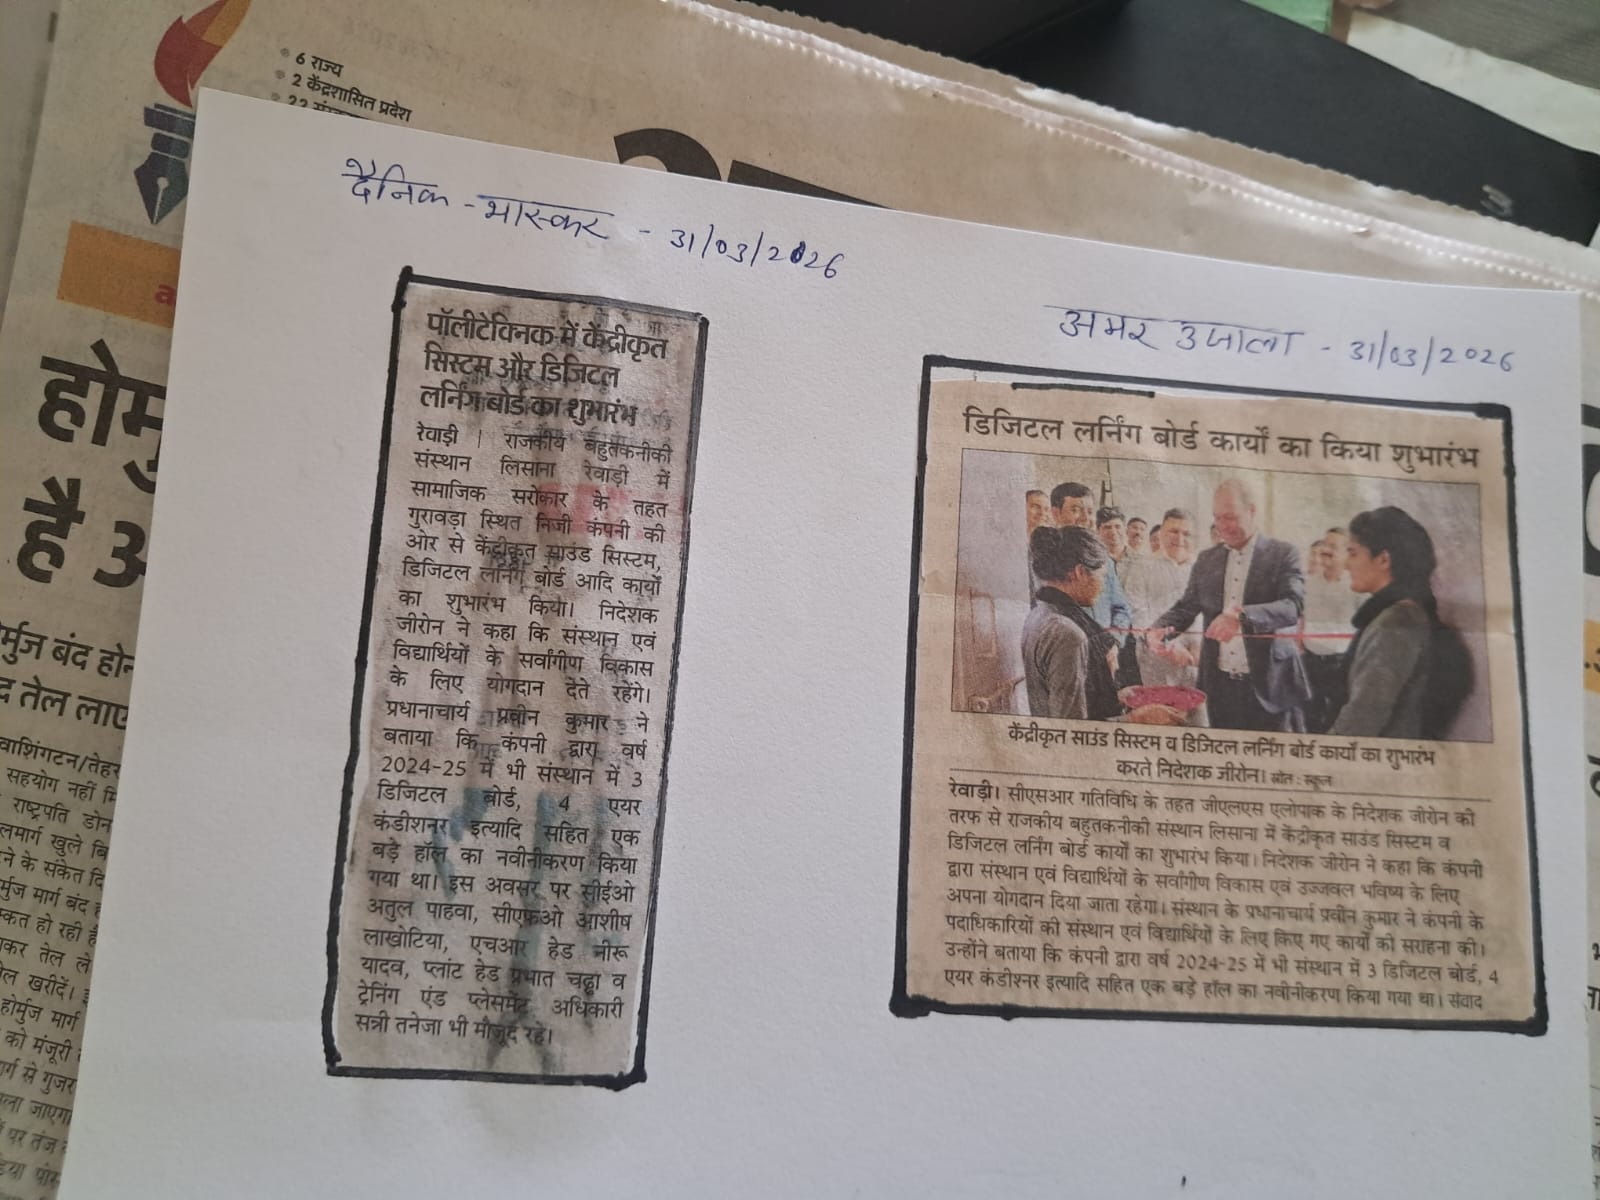 6 राज्य
2 केंद्रशासित प्रदेश
दैनिक - भास्कर - 31/03/2026
पॉलीटेक्निक में केंद्रीकृत
सिस्टम और डिजिटल
लर्निंग बोर्ड का शुभारंभ
रेवाड़ी | राजकीय बहुतकनीकी
संस्थान लिसाना रेवाड़ी में
सामाजिक सरोकार के तहत
गुरावड़ा स्थित निजी कंपनी की
ओर से केंद्रीकृत साउंड सिस्टम,
डिजिटल लर्निंग बोर्ड आदि कार्यों
का शुभारंभ किया। निदेशक
जीरोन ने कहा कि संस्थान एवं
विद्यार्थियों के सर्वांगीण विकास
के लिए योगदान देते रहेंगे।
प्रधानाचार्य प्रवीन कुमार ने
बताया कि कंपनी द्वारा वर्ष
2024-25 में भी संस्थान में 3
डिजिटल बोर्ड, 4 एयर
कंडीशनर इत्यादि सहित एक
बड़े हॉल का नवीनीकरण किया
गया था। इस अवसर पर सीईओ
अतुल पाहवा, सीएफओ आशीष
लाखोटिया, एचआर हेड नीरू
यादव, प्लांट हेड प्रभात चढ्ढा व
ट्रेनिंग एंड प्लेसमेंट अधिकारी
सन्नी तनेजा भी मौजूद रहे।
अमर उजाला - 31/03/2026
डिजिटल लर्निंग बोर्ड कार्यों का किया शुभारंभ
केंद्रीकृत साउंड सिस्टम व डिजिटल लर्निंग बोर्ड कार्यों का शुभारंभ
करते निदेशक जीरोन। स्रोत : स्कूल
रेवाड़ी। सीएसआर गतिविधि के तहत जीएलएस एलोपाक के निदेशक जीरोन की
तरफ से राजकीय बहुतकनीकी संस्थान लिसाना में केंद्रीकृत साउंड सिस्टम व
डिजिटल लर्निंग बोर्ड कार्यों का शुभारंभ किया। निदेशक जीरोन ने कहा कि कंपनी
द्वारा संस्थान एवं विद्यार्थियों के सर्वांगीण विकास एवं उज्जवल भविष्य के लिए
अपना योगदान दिया जाता रहेगा। संस्थान के प्रधानाचार्य प्रवीन कुमार ने कंपनी के
पदाधिकारियों की संस्थान एवं विद्यार्थियों के लिए किए गए कार्यों की सराहना की।
उन्होंने बताया कि कंपनी द्वारा वर्ष 2024-25 में भी संस्थान में 3 डिजिटल बोर्ड, 4
एयर कंडीश्नर इत्यादि सहित एक बड़े हॉल का नवीनीकरण किया गया था। संवाद
है
बंद
तेल
वाशिंगटन/
सहयोग नहीं
राष्ट्रपति
खुले
के संकेत
मार्ग बंद
हो रही
तेल
खरीदें।
होर्मुज मार्ग
को मंजूरी
से गुजर
पर तंज